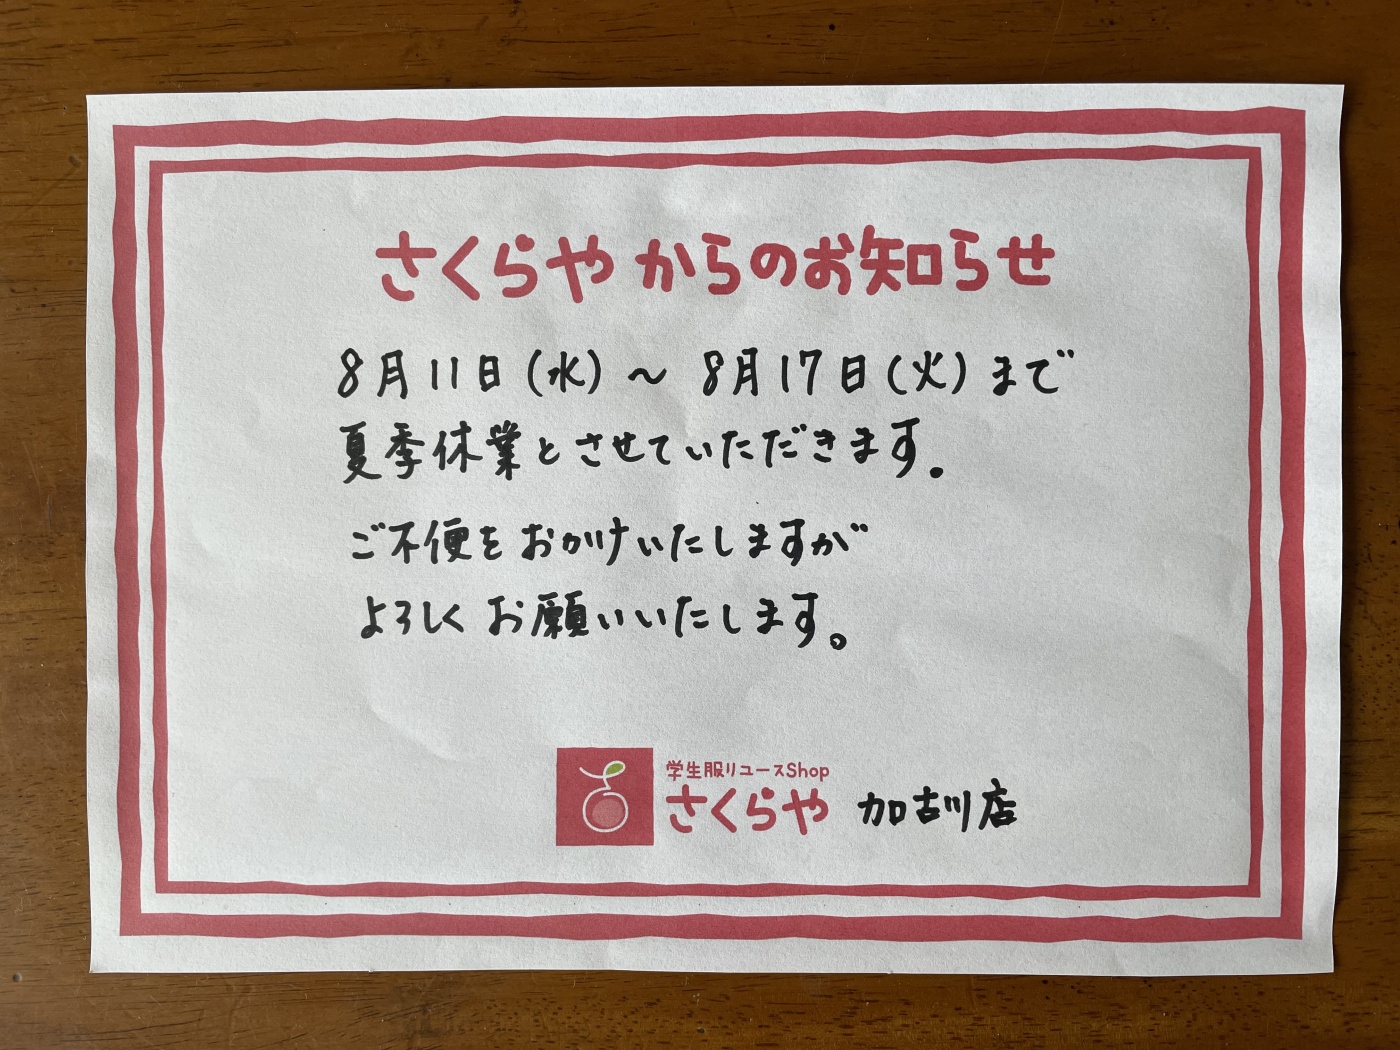 さくらやからのお知らせ
8月11日(水)～8月17日(火)まで
夏季休業とさせていただきます.
ご不便をおかけいたしますが
よろしくお願いいたします。
学生服リユースShop
さくらや 加古川店